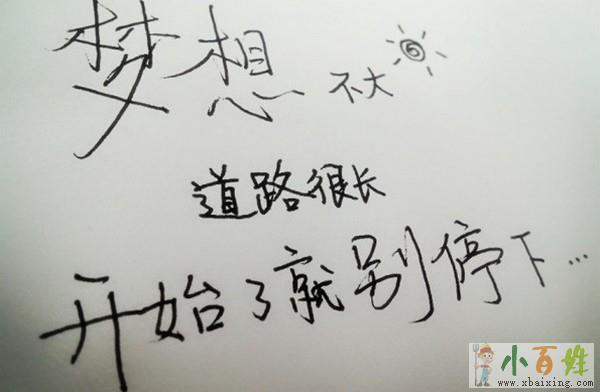 梦想不大
道路很长
开始了就别停下...
小百姓
www.xbaixing.com